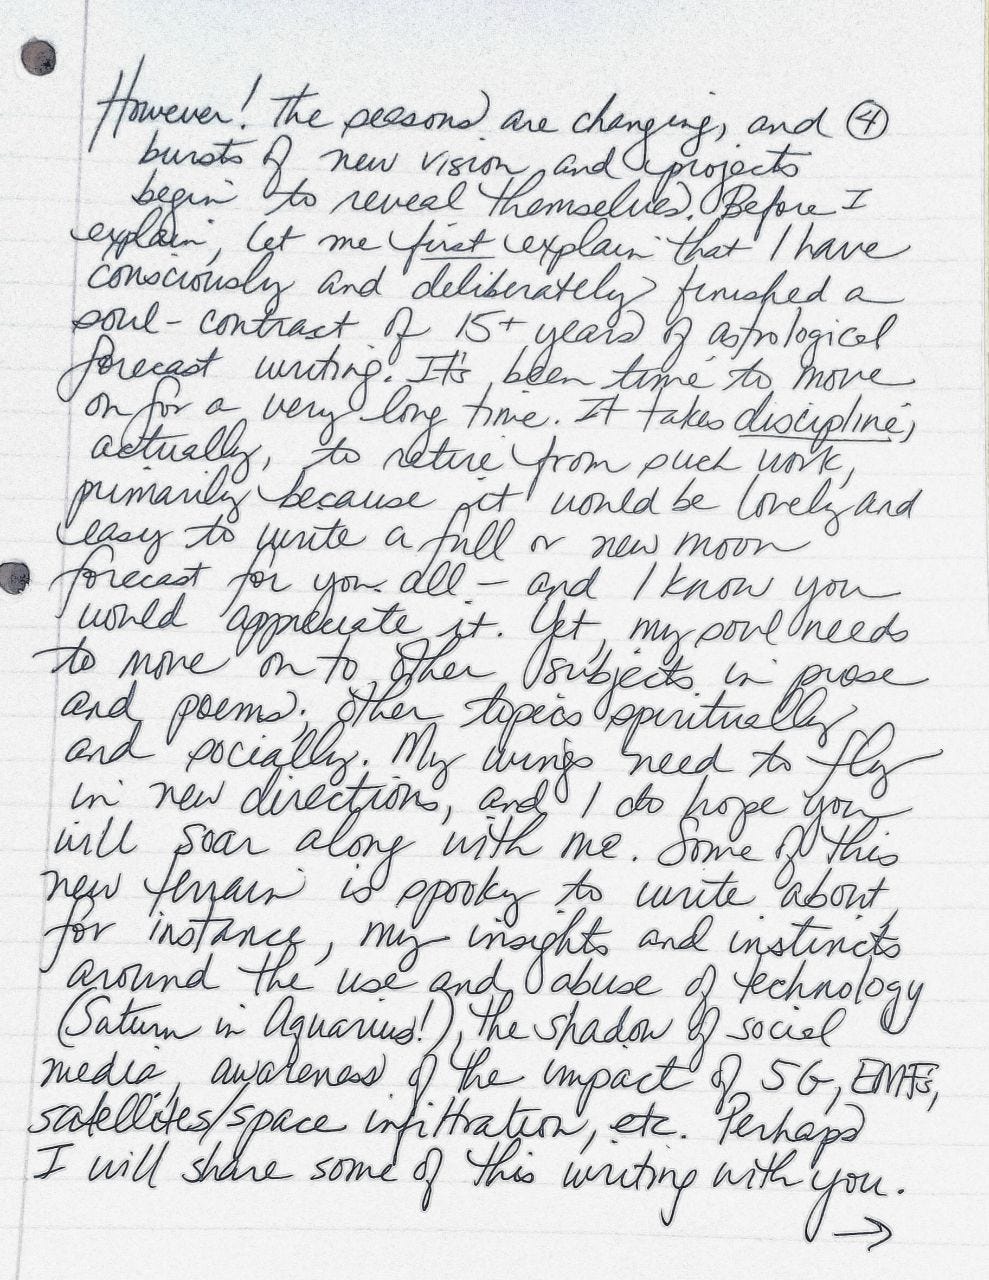 However! the seasons are changing, and ④
bursts of new vision and projects
begin to reveal themselves. Before I
explain, let me first explain that I have
consciously and deliberately finished a
soul-contract of 15+ years of astrological
forecast writing. It's been time to move
on for a very long time. It takes discipline,
actually, to retire from such work,
primarily because it would be lovely and
easy to write a full or new moon
forecast for you all — and I know you
would appreciate it. Yet, my soul needs
to move on to other subjects in prose
and poems; other topics spiritually
and socially. My wings need to fly
in new directions, and I do hope you
will soar along with me. Some of this
new terrain is spooky to write about,
for instance, my insights and instincts
around the use and abuse of technology
(Saturn in Aquarius!), the shadow of social
media, awareness of the impact of 5G, EMFs,
satellites/space infiltration, etc. Perhaps
I will share some of this writing with you.
→